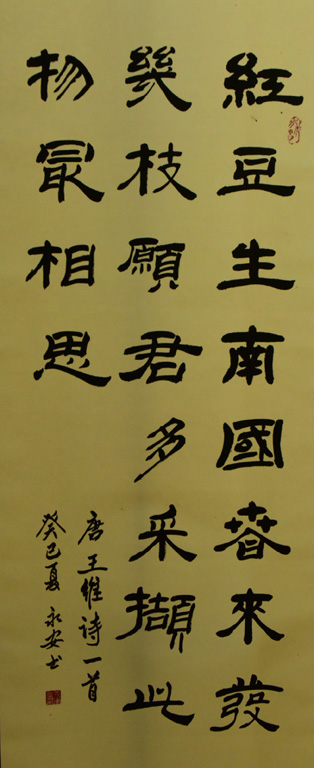 紅豆生南國春來發
幾枝願君多采擷此
物最相思
唐王維詩一首
癸巳夏永安书